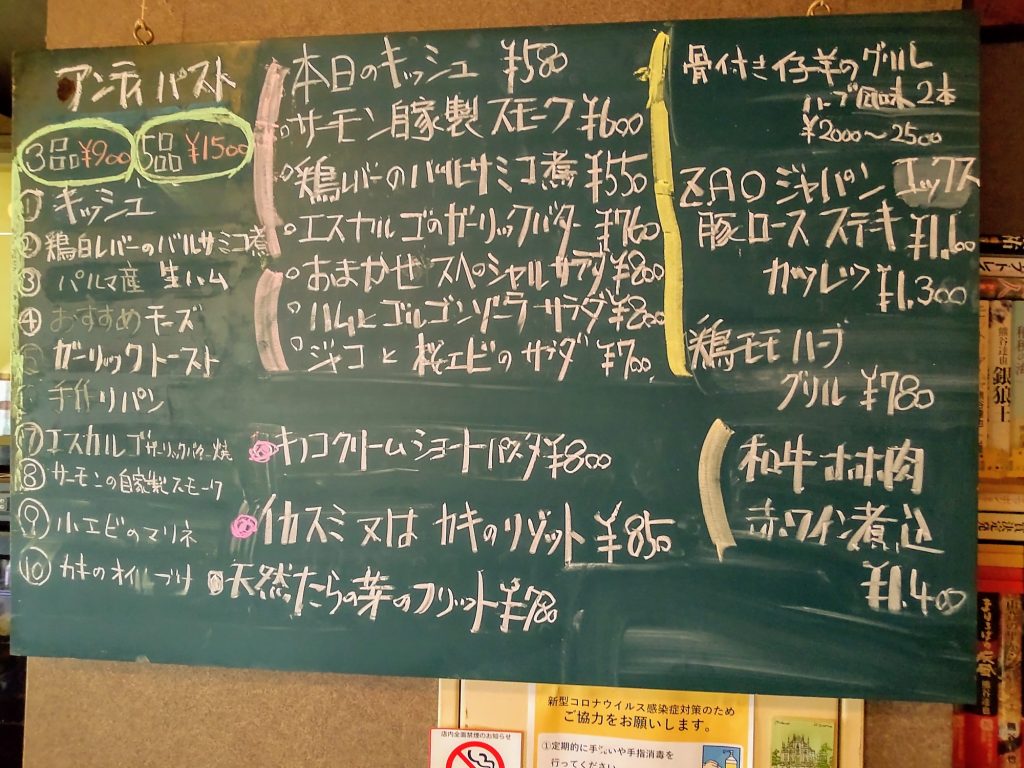 アンティパスト
3品 ¥900 5品 ¥1500
① キッシュ
② 鶏白レバーのバルサミコ煮
③ パルマ産 生ハム
④ おすすめチーズ
ガーリックトースト
手作りパン
⑦ エスカルゴガーリックバター焼
⑧ サーモンの自家製スモーク
⑨ 小エビのマリネ
⑩ カキのオイルづけ
本日のキッシュ ¥580
サーモン自家製スモーク ¥600
鶏レバーのバルサミコ煮 ¥550
エスカルゴのガーリックバター ¥760
おまかせスペシャルサラダ ¥800
ハムとゴルゴンゾーラサラダ ¥800
ジャコと桜エビのサラダ ¥700
キノコクリームショートパスタ ¥800
イカスミ又はカキのリゾット ¥850
天然たらの芽のフリット ¥780
骨付き仔羊のグリル
ハーブ風味 2本
¥2000〜2500
ZAOジャパン エックス
豚ロースステーキ
カツレツ ¥1,300
鶏モモハーブ
グリル ¥780
和牛ホホ肉
赤ワイン煮込
¥1,400
新型コロナウイルス感染症対策のため
ご協力をお願いします。
①定期的に手洗いや手指消毒を
行ってください
店内全面禁煙のお知らせ
銀狼王
熊谷達也